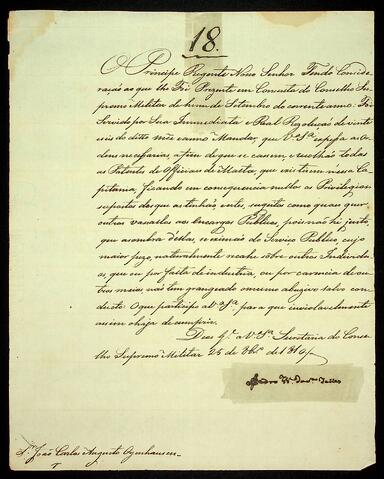 18.
O Principe Regente Nosso Senhor Tendo Conside
ração ao que lhe Foi Prezente em Consulta do Conselho Su
premo Militar de hum de Setembro do corrente anno: Foi
Servido por Sua Immediata e Real Rezolução de vinte
seis do ditto mez e anno Mandar, que V. Sª expessa as or
dens necessarias, a fim de que se cassem, e recolhão todas
as Patentes de Officiaes de Malta, que exis tirem nessa Ca
pitania, ficando em consequencia nullos os Privilegios
supostos dos que as tinhão, e sugeitos como quaes quer
outros vassallos aos encargos Publicos, pois não he justo,
que a sombra d'ellas, se eximão do Serviço Publico, cujo
maior pezo, naturalmente recahe sobre outros Individu
os, que ou por falta de industria, ou por carencia de ou
tros meios não tem grangeado o mesmo abuzivo salvo con
ducto. O que participo a V. Sª para que inviolavelmente
assim o haja de cumprir.
Deos gᵉ a V. Sª Secretaria do Conse
lho Supremo Militar 25 de 8brº de 1810
Sʳ João Carlos Augusto Oyenhausen